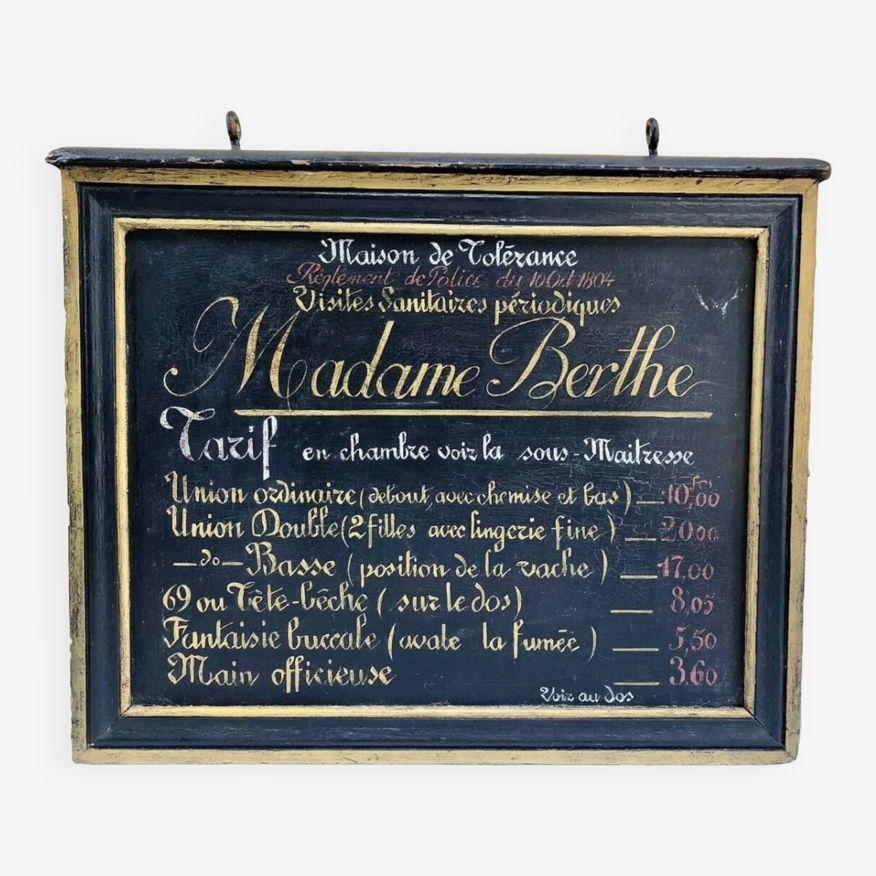 Maison de Tolérance
Règlement de Police du 10 Oct 1804
Visites Sanitaires périodiques
Madame Berthe
Tarif en chambre voir la sous-Maitresse
Union ordinaire (debout, avec chemise et bas) — 10,00 frs
Union Double (2 filles avec lingerie fine) — 20 00
—do— Basse (position de la vache) — 17,00
69 ou Tête-bêche (sur le dos) — 8,05
Fantaisie buccale (avale la fumée) — 5,50
Main officieuse — 3.60
Voir au dos